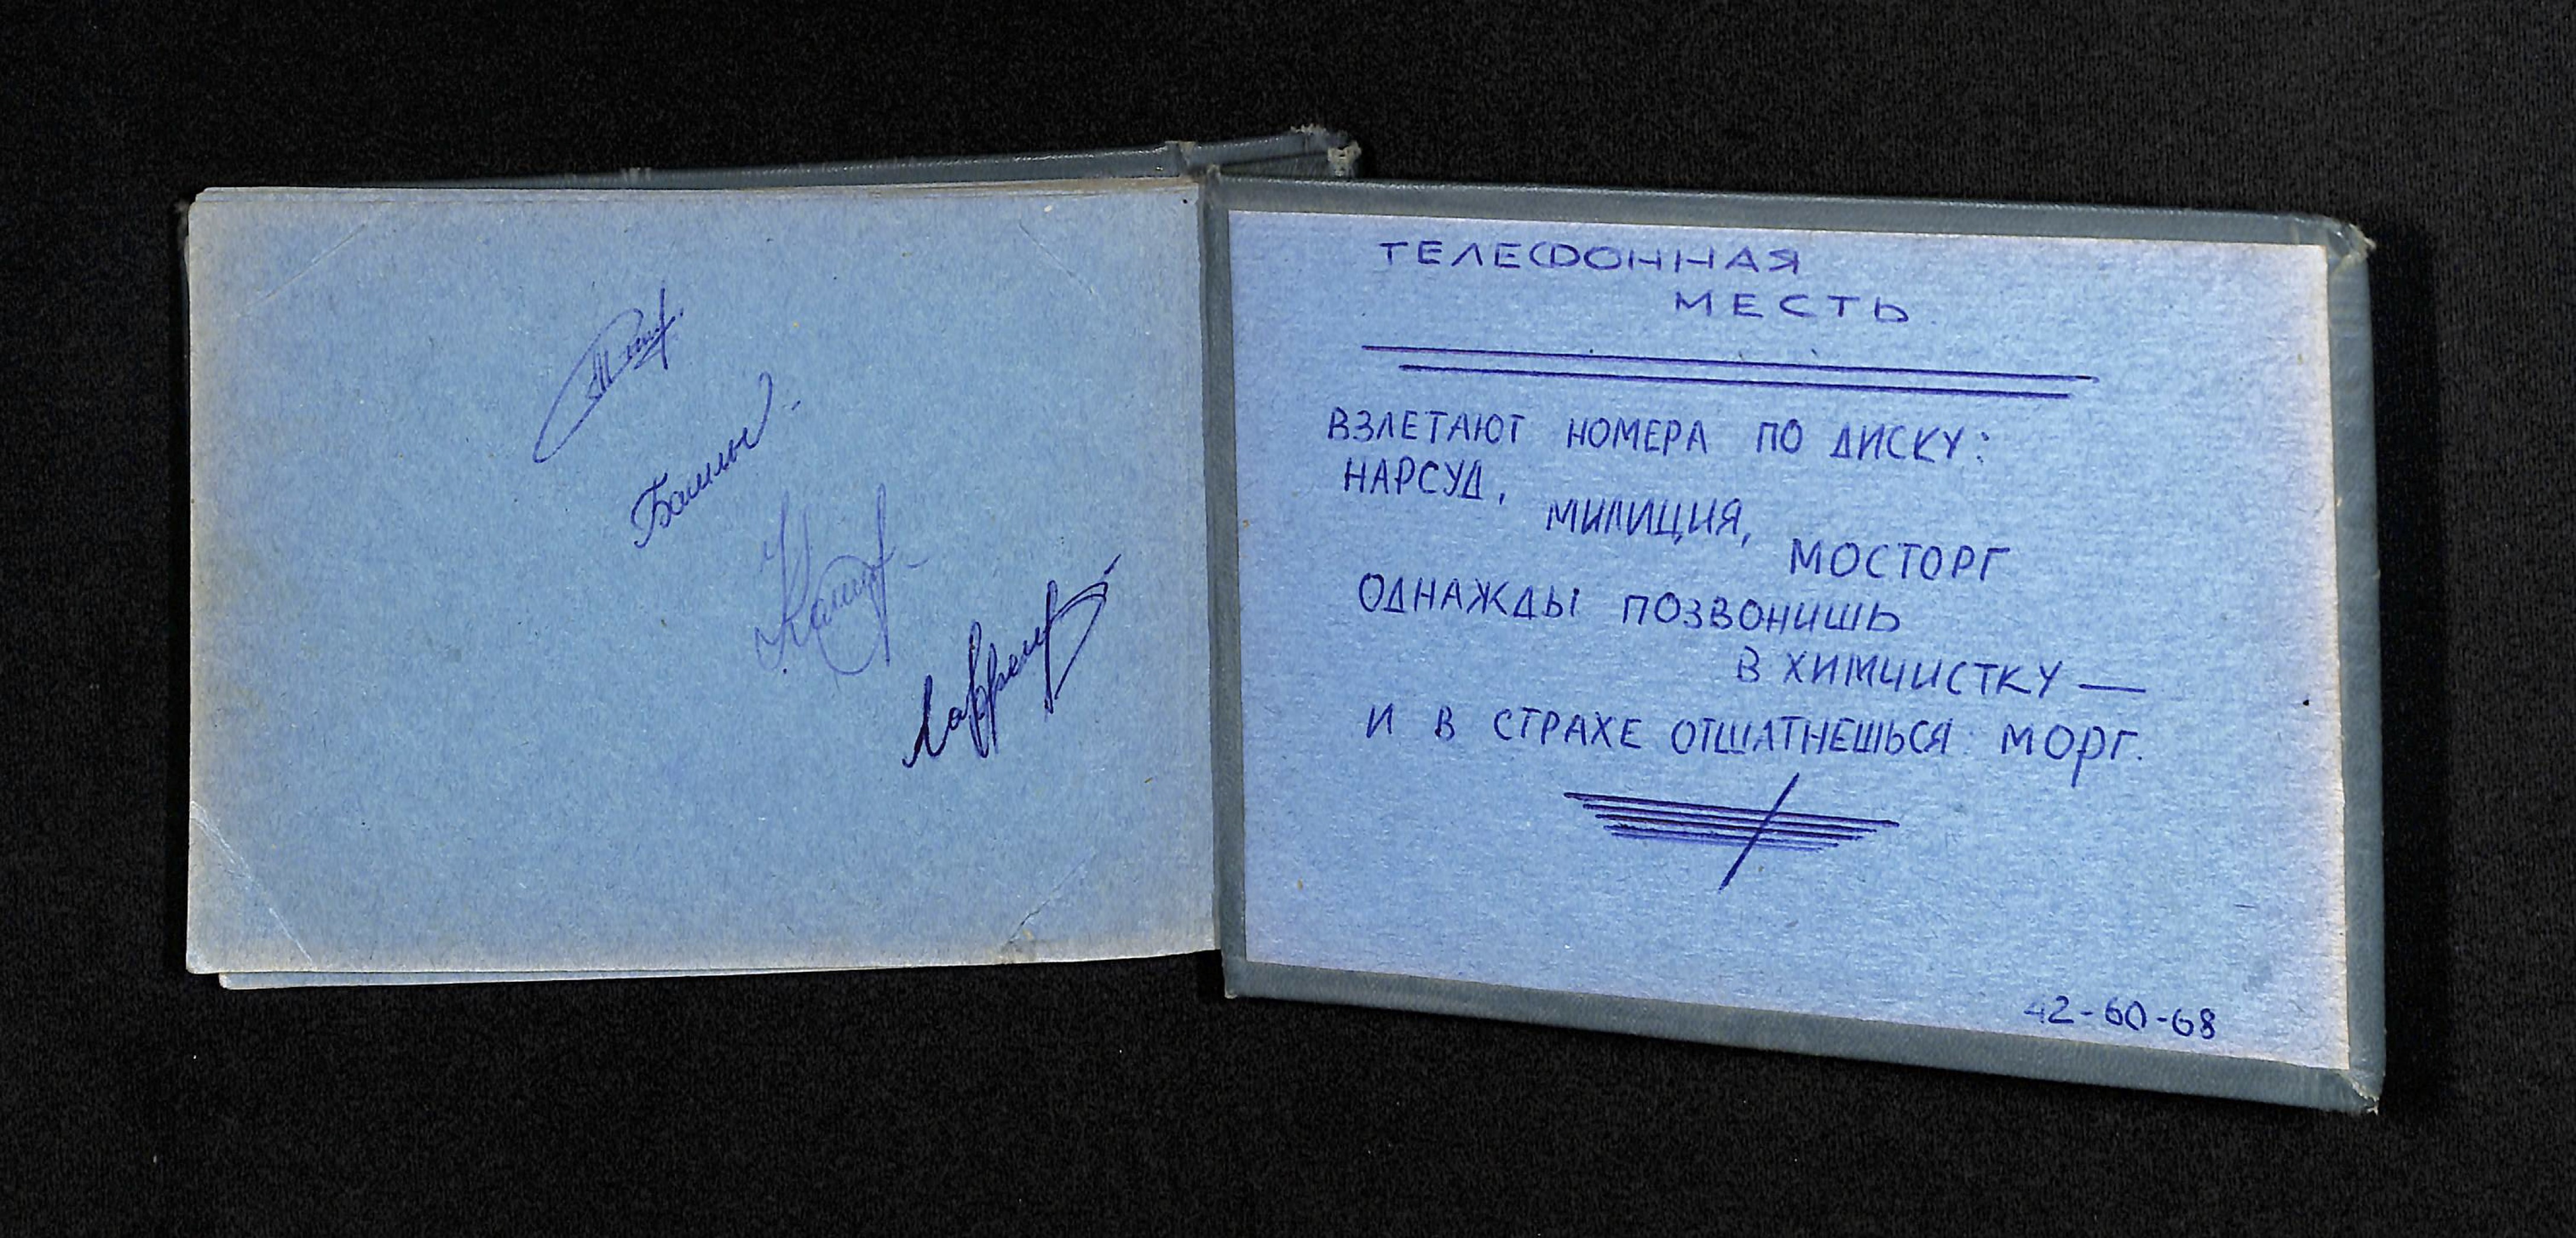 ТЕЛЕФОННАЯ
МЕСТЬ
ВЗЛЕТАЮТ НОМЕРА ПО ДИСКУ:
НАРСУД,
МИЛИЦИЯ,
МОСТОРГ
ОДНАЖДЫ ПОЗВОНИШЬ
В ХИМЧИСТКУ —
И В СТРАХЕ ОТШАТНЕШЬСЯ: МОРГ.
42-60-68